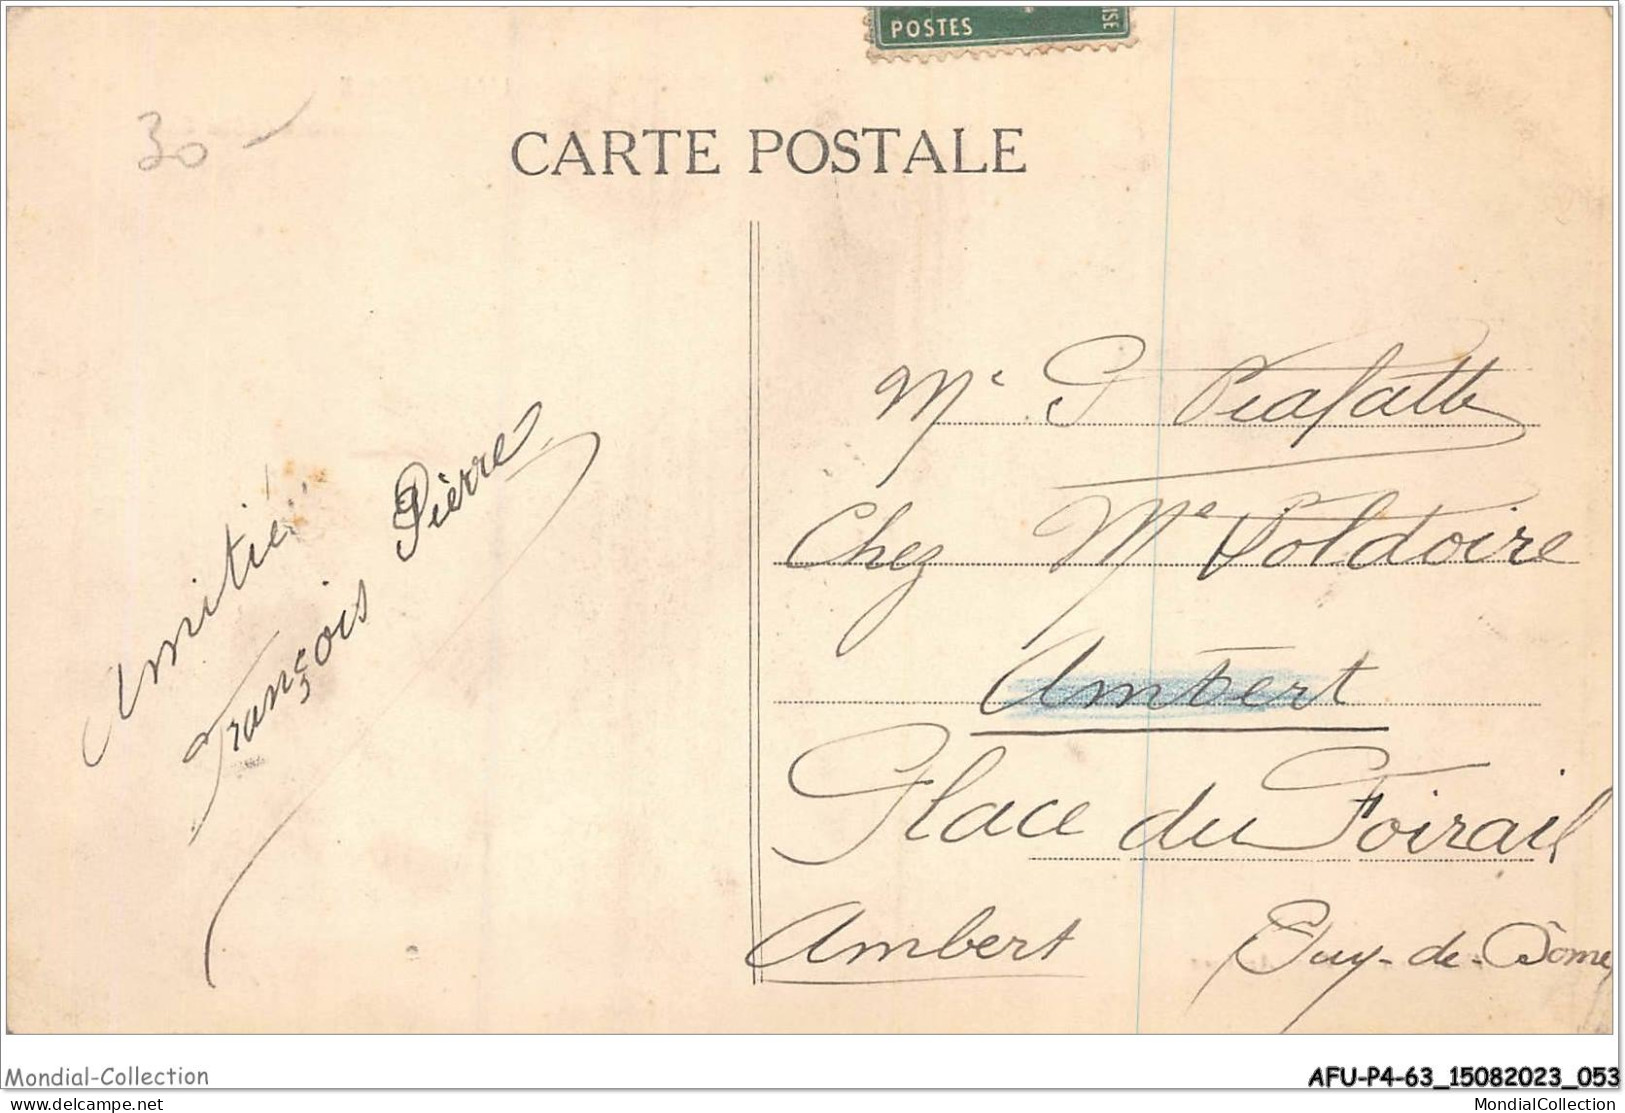 POSTES
30-
CARTE POSTALE
Amitié
François Pierre
Mr
Chez Mr Poldoire
Ambert
Place du Foirail
Ambert Puy-de-Dôme
Mondial-Collection
AFU-P4-63_15082023_053
www.delcampe.net
MondialCollection